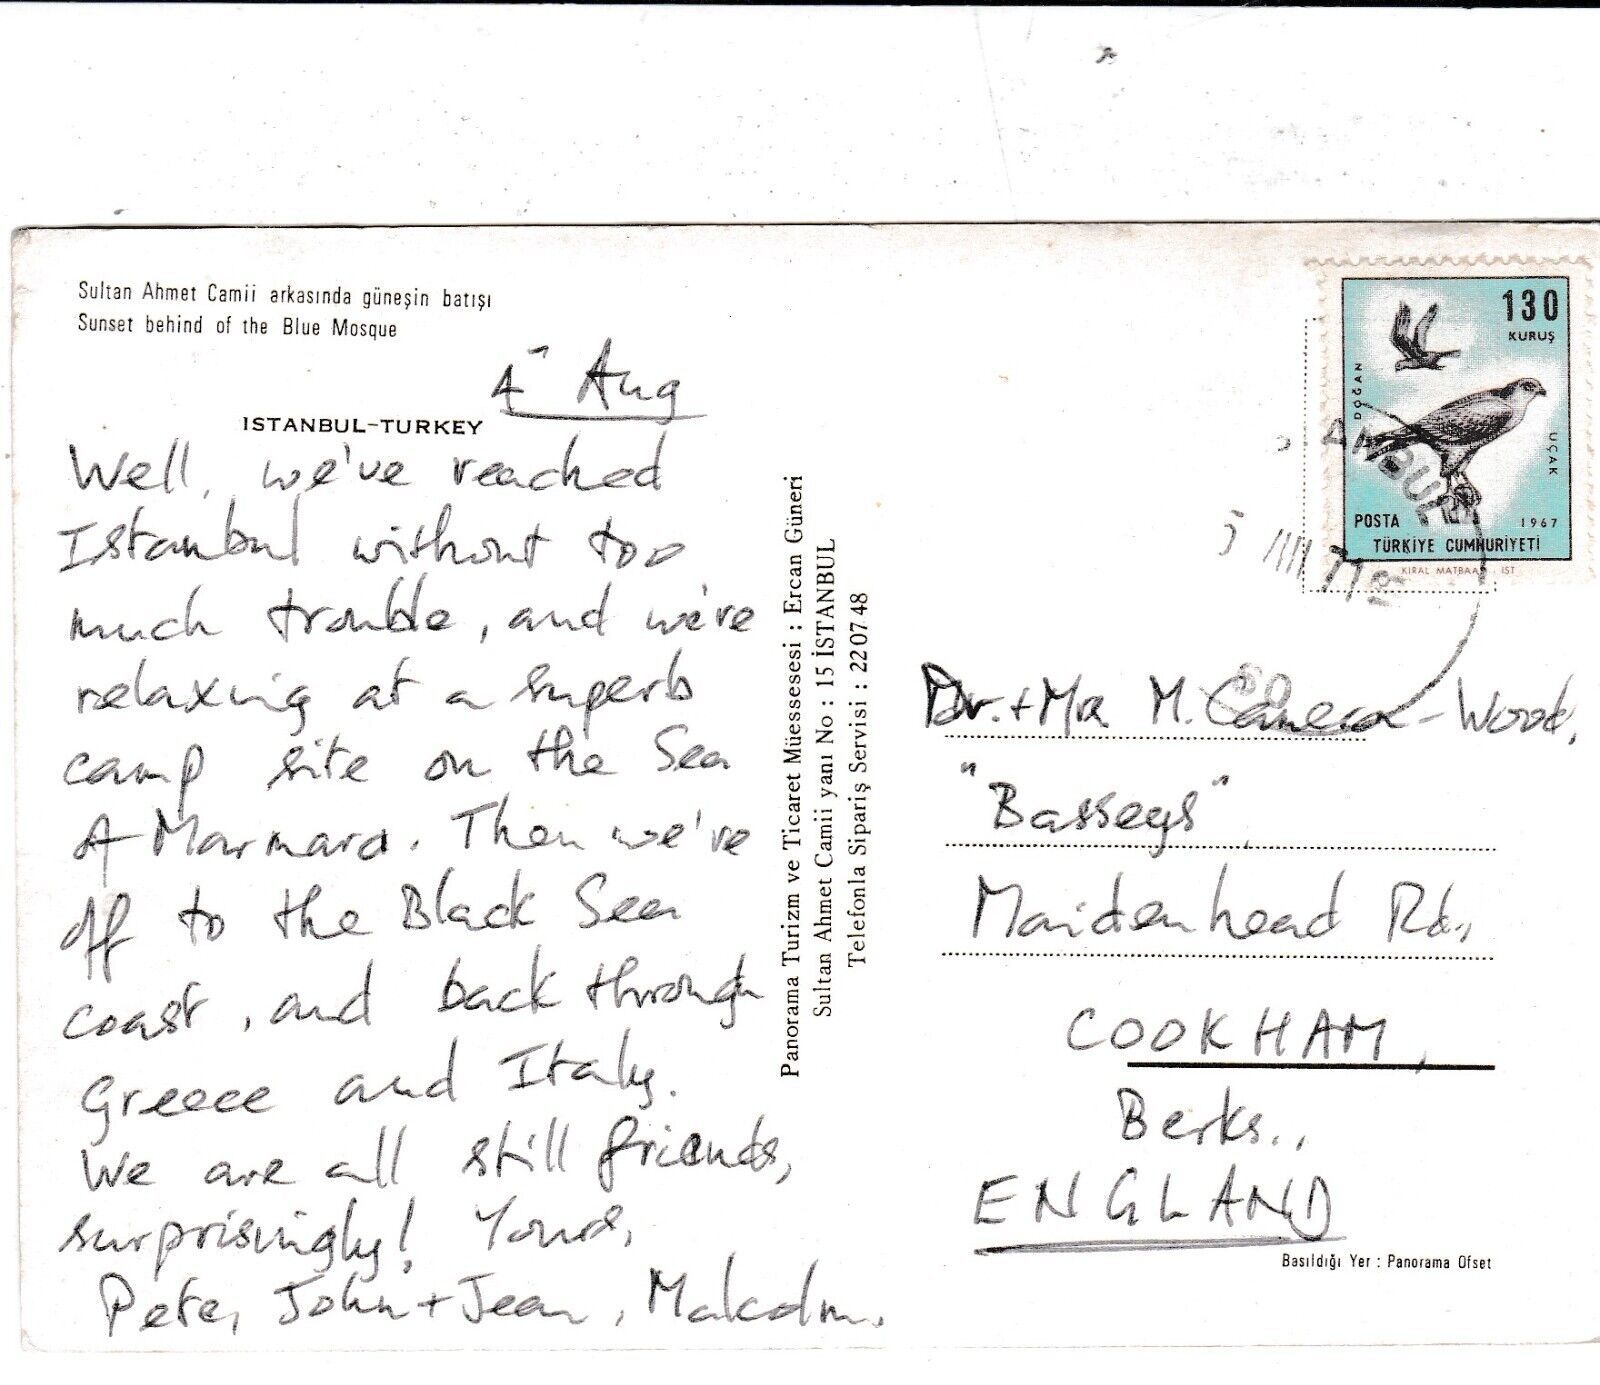 Sultan Ahmet Camii arkasında güneşin batışı
Sunset behind of the Blue Mosque
ISTANBUL-TURKEY
4 Aug
Well, we've reached
Istanbul without too
much trouble, and we're
relaxing at a superb
camp site on the Sea
of Marmara. Then we're
off to the Black Sea
coast, and back through
Greece and Italy.
We are all still friends,
surprisingly! Yours,
Pete, John + Jean, Malcolm.
Panorama Turizm ve Ticaret Müessesesi : Ercan Güneri
Sultan Ahmet Camii yanı No : 15 İSTANBUL
Telefonla Sipariş Servisi : 22 07 48
130
KURUŞ
DOĞAN
UÇAK
POSTA 1967
TÜRKİYE CUMHURİYETİ
KIRAL MATBAASI - IST
Dr. + Mrs M. Cameron-Wood,
"Basseys",
Maidenhead Rd.,
COOKHAM,
Berks.,
ENGLAND
Basıldığı Yer : Panorama Ofset